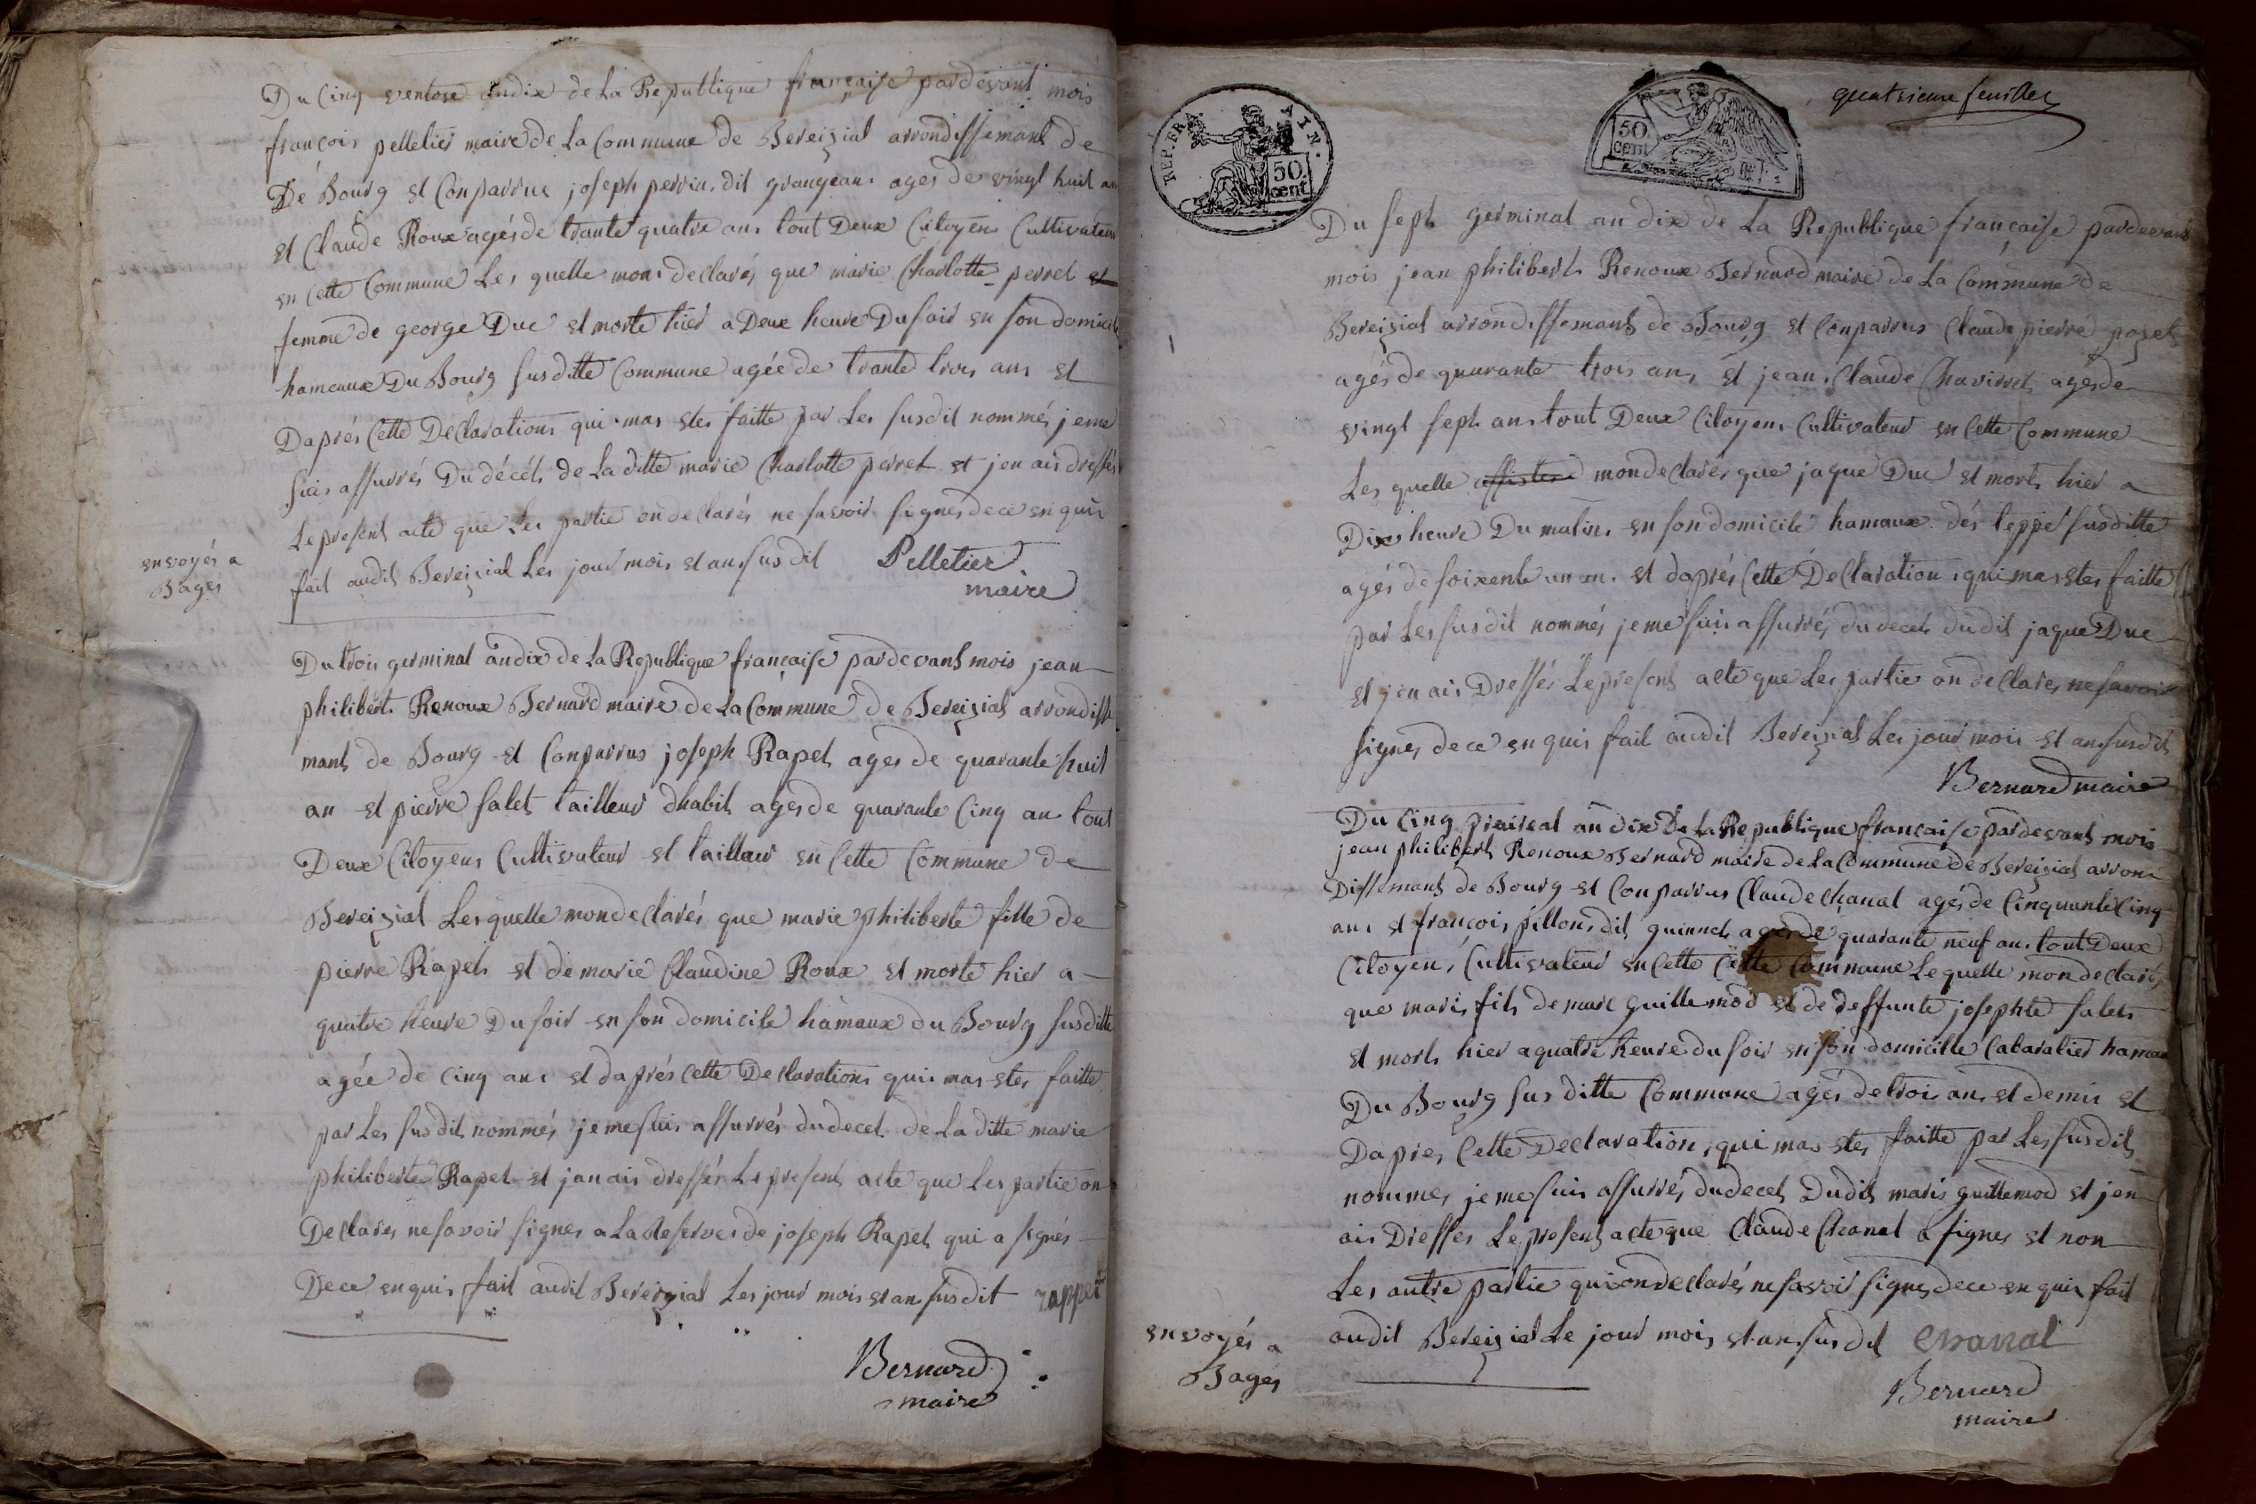 Du Cinq ventose andix de La Republique française pardevant mois
françois pelletier maire de La Commune de Bereiziat arrondissemant de
De Bourg et Conparrue joseph perrin dit grangean ages de vingt huit an
et Claude Roux agés de trante quatre ans tout Deux Citoyens Cultivateur
en Cette Commune Les quelle mons declarés que marie Charlotte perret et
femme de george Duc et morte hier a Deux heure Du soir en son domicile
hameaux Du Bourg susditte Commune agée de trante trois ans et
Daprés Cette Declarations qui mas etes faitte par Les susdit nommés jeme
suis assurrés Du décéts de La ditte marie Charlotte perret et jen ais dressés
Le present acte que Les partie on declarés ne savoir signes dece enquis
fait audit Bereiziat Les jour mois et an susdit Pelletier
maire
envoyés a
Bages
Du trois germinal andix de La Republique française pardevant mois jean
philibert Renoux Bernard maire de La Commune de Bereiziat arrondisse
mant de Bourg et Conparrus joseph Rapet ages de quarante huit
an et pierre salet tailleur dhabit ages de quarante Cinq an tout
Deux Citoyens Cultivateur et taillaur en Cette Commune de
Bereiziat Lesquelle mondeclarés que marie philiberte fille de
pierre Rapet et de marie Claudine Roux et morte hier a
quatre heure Du soir en son domicile hamaux du Bourg susditte
agée de Cinq ans et daprés Cette Declarations quis mas etes faitte
par Les susdit nommés je me suis assurrés du decet de La ditte marie
philiberte Rapet et janais dressér Le present acte que Les partie on
Declares ne savoir signes a La Reserves de joseph Rapet qui a signés
Dece enquis fait audit Bereiziat Les jour mois et an susdit rappet
Bernard
maire
REP. FRA AIN.
50 cent
50 cent
quatrieme feuillet
Du sept germinal an dix de La Republique française pardevant
mois jean philibert Renoux Bernard maire de La Commune de
Bereiziat arrondissemant de Bourg et Conparrus Claude pierre pozet
agés de quarante trois ans et jean Claude Chavirret agés de
vingt sept ans tout Deux Citoyens Cultivateur en Cette Commune
Les quelle assister mondeclarés que jaque Duc et mort hier a
Dix heure Du matin en son domicile hamaux dés teppé susditte
agés de soixente un an et daprés Cette Declaration qui mas etes faitte
par Les susdit nommés je me suis assurrés du decet dudit jaque Duc
et jen ais Dressér Le present acte que Les partie on declares ne savoir
signes dece enquis fait audit Bereiziat Les jour mois et an susdit
Bernard maire
Du Cinq preireal an dix De La Republique française pardevant mois
jean philibert Renoux Bernard maire de La Commune de Bereiziat arron
Dissemant de Bourg et Conparrus Claude Chanal agés de Cinquante Cinq
ans et françois pillon dit guinnet agés de quarante neuf ans tout Deux
Citoyens Cultivateur en Cette Cette Commune Lequelle mon declarés
que maris fils de marc guillemod et de deffunte josephte salet
et mort hier a quatre heure du soir en son domicille Cabaratier hamau
Du Bourg susditte Commune agés de trois ans et demis et
Dapres Cette Declaration qui mas etes faitte par Les susdit
nommes je me suis assurrés du decet Dudit maris guillemod et jen
ais Dresses Le present acte que Claude Chanal a signes et non
Les autre partie qui on declarés ne savoir signes dece enquis fait
audit Bereiziat Le jour mois et an susdit Chanal
Bernard
maire
envoyés a
Bages